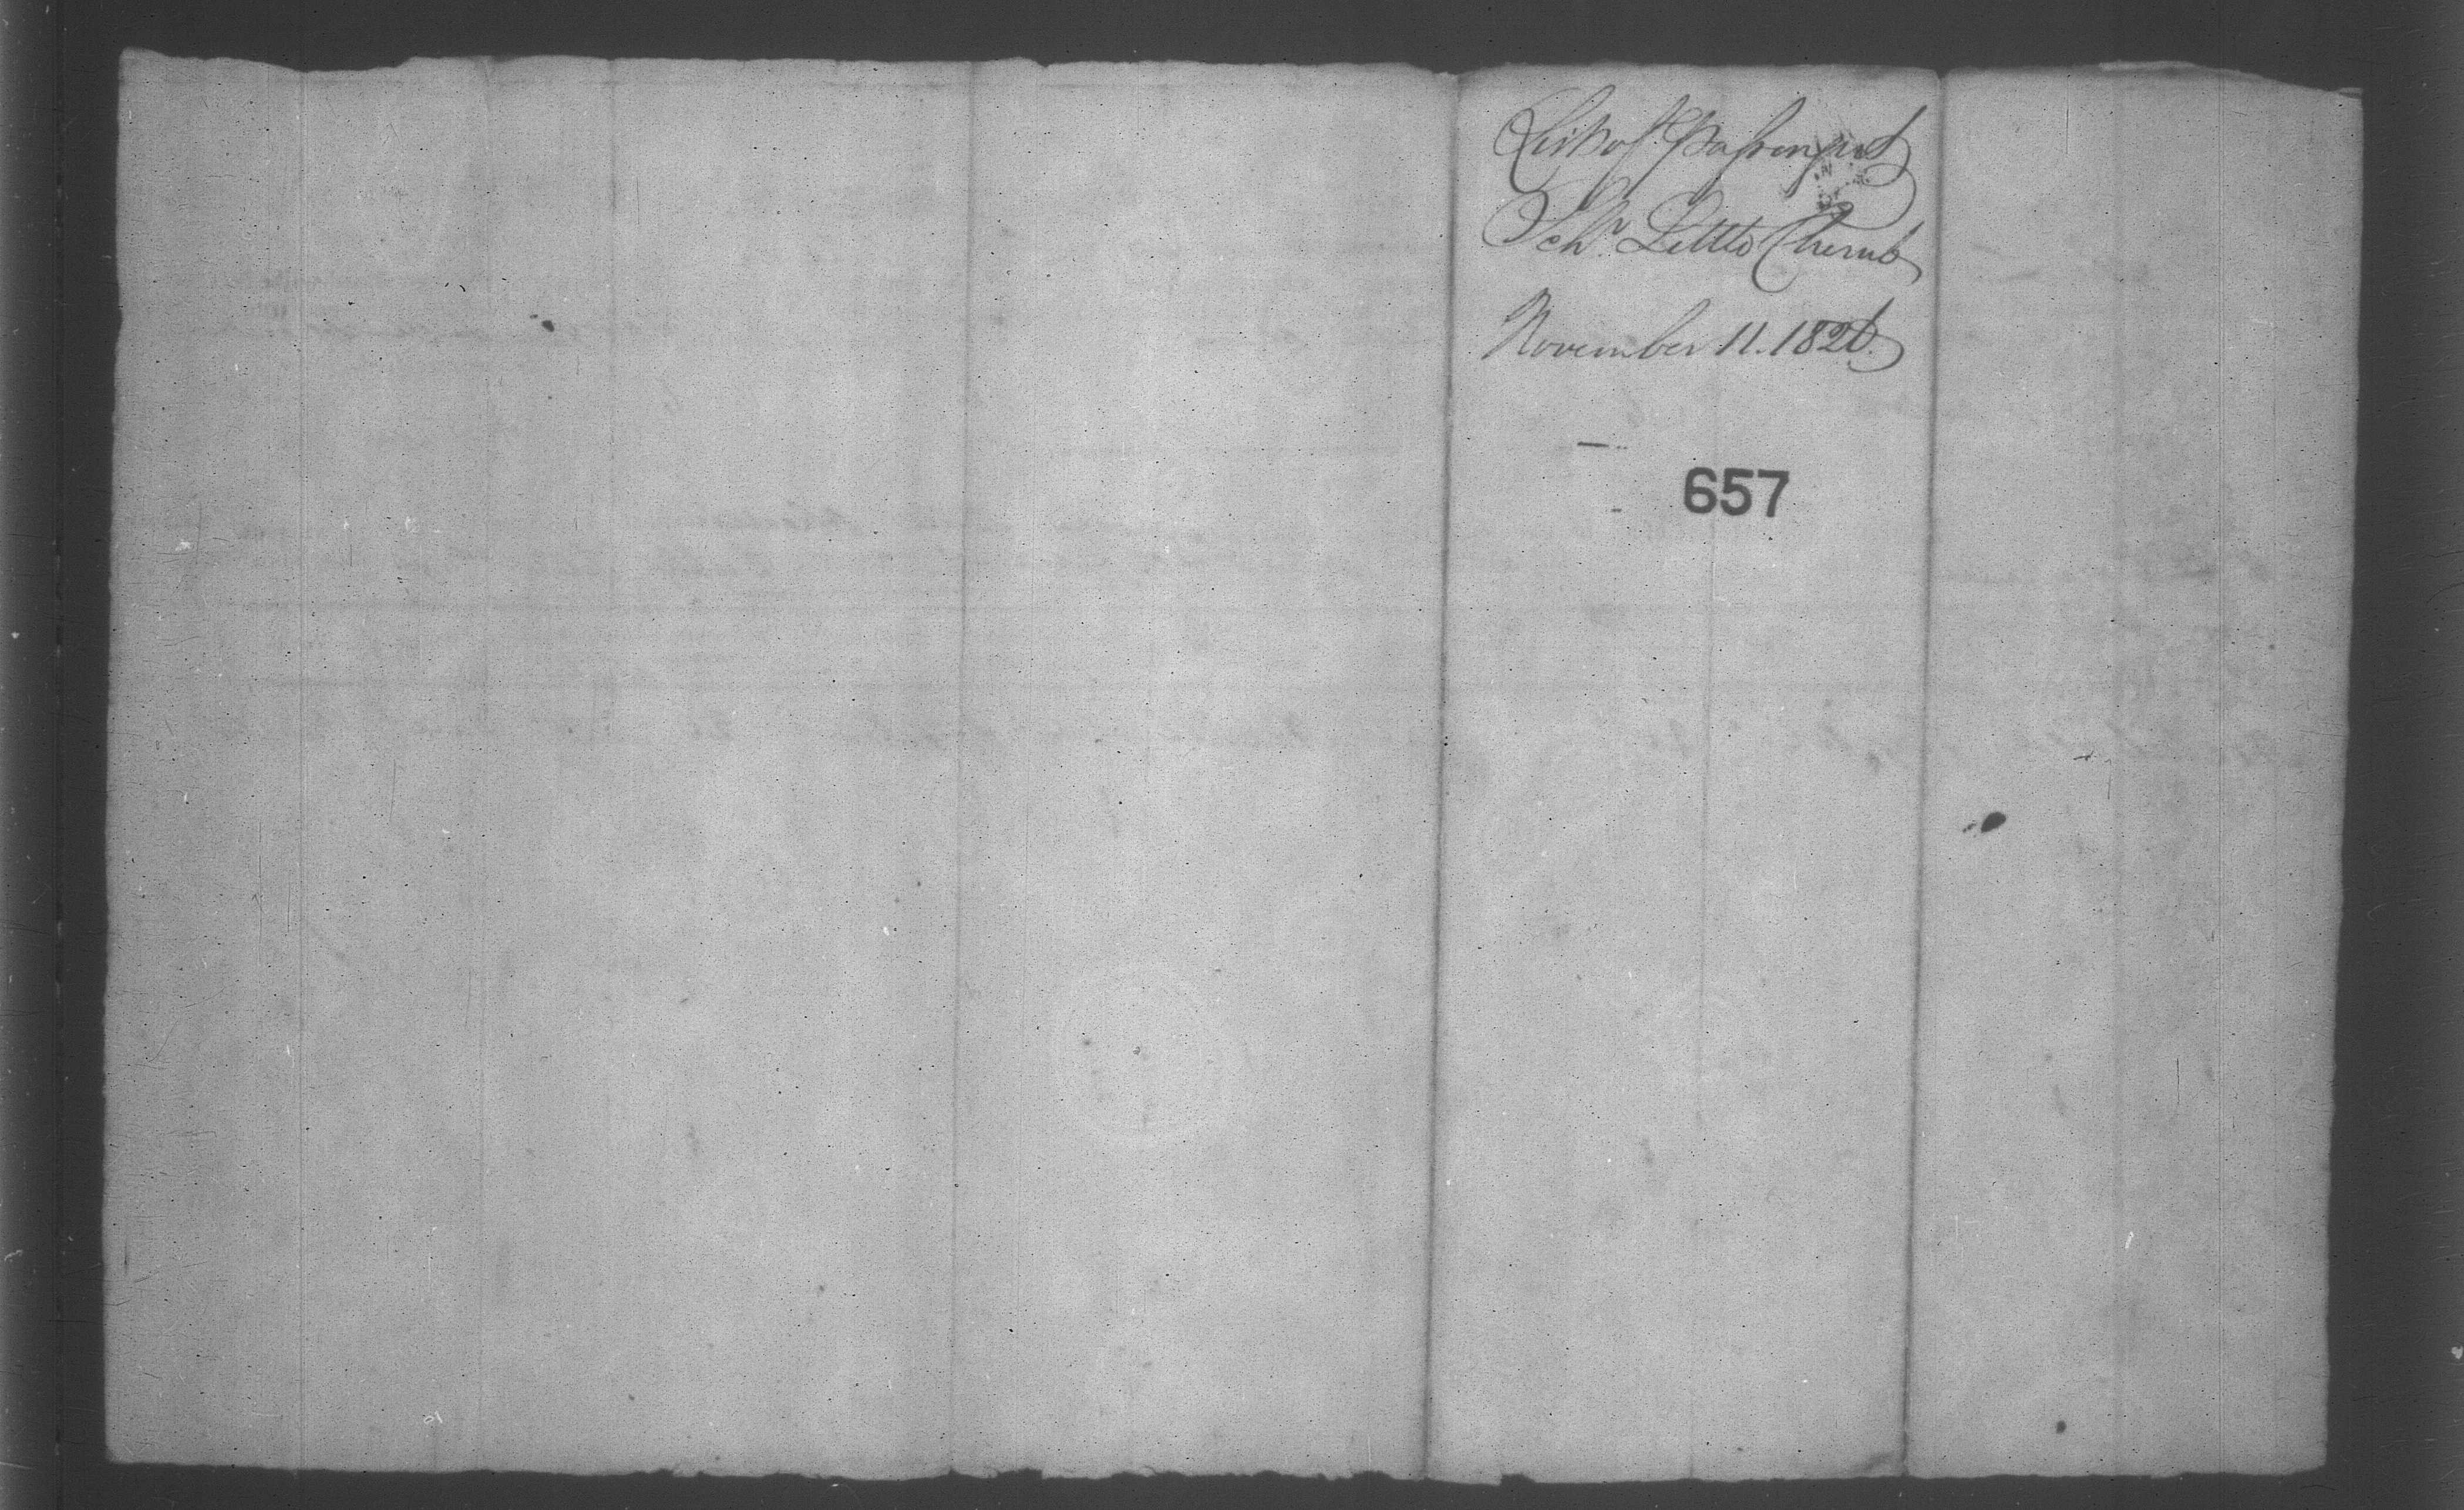 List of Passengers
Schr. Little Cherub
November 11. 1826.
657